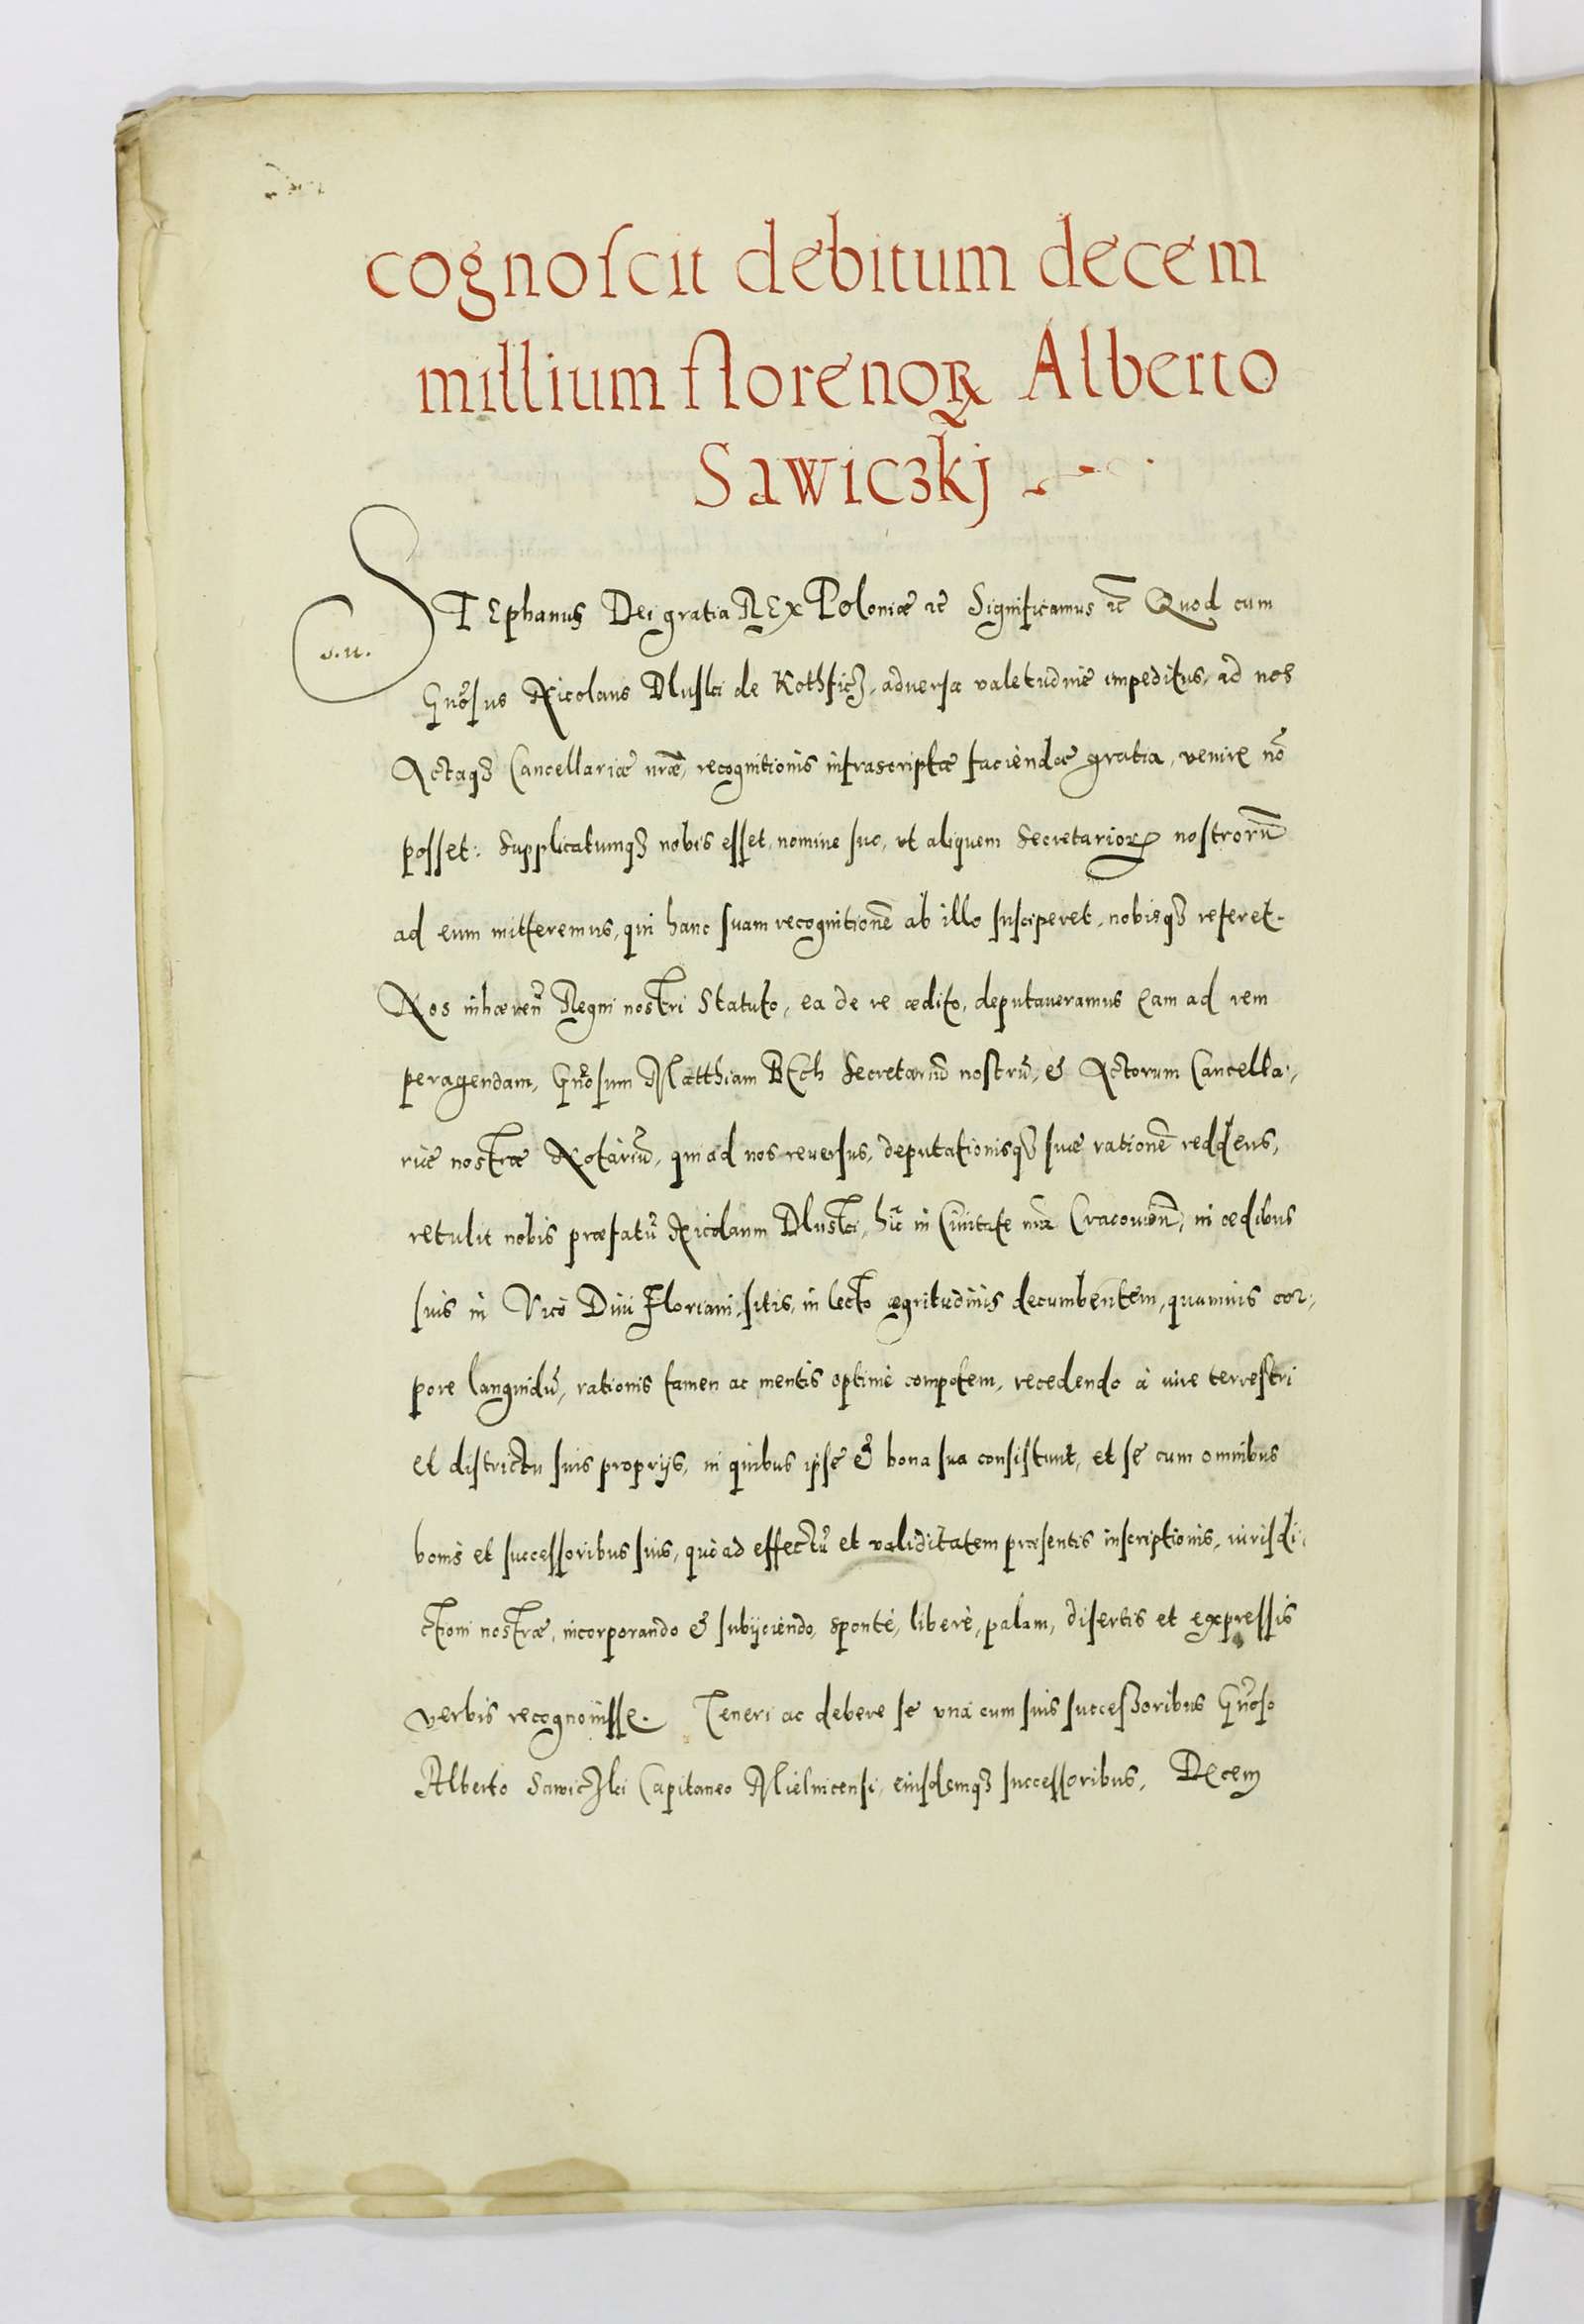 cognoscit debitum decem
millium florenoꝝ Alberto
Sawiczkj
STEphanus Dei gratia REx Poloniæ ꝛc Significamus ꝛc Quod cum
s.u.
Gn̄osus Nicolaus Dluski de Kothficz, adversa valetudine impeditus, ad nos
Actaqꝫ Cancellariæ nr̄æ, recognitionis infrascriptæ faciendæ gratia, venire nō
posset: Supplicatumqꝫ nobis esset, nomine suo, ut aliquem Secretarioꝝ nostrorū
ad eum mitteremus, qui hanc suam recognitionē ab illo susciperet, nobisqꝫ referet.
Nos inhæren̄ Regni nostri Statuto, ea de re ædito, deputaueramus eam ad rem
peragendam, Gn̄osum Matthiam BEch Secretariū nostrū, & Actorum Cancella,
riæ nostræ Notariū, qui ad nos reuersus, deputationisqꝫ suæ rationē reddens,
retulit nobis præfatū Nicolaum Dluski, hic in Ciuitate nr̄a Cracouien̄, in ædibus
suis in Vico Diui Floriani sitis, in lecto ægritudinis decumbentem, quamuis cor,
pore languidū, rationis tamen ac mentis optimè compotem, recedendo à iure terrestri
et districtu suis proprijs, in quibus ipse & bona sua consistunt, et se cum omnibus
bonis et successoribus suis, quò ad effectū et validitatem præsentis inscriptionis, iurisdi,
ctioni nostræ, incorporando & subijciendo, sponte, liberè, palam, disertis et expressis
verbis recognouisse. Teneri ac debere se unà cum suis successoribus Gn̄oso
Alberto Sawiczki Capitaneo Mielnicensi, eiusdemqꝫ successoribus, Decem